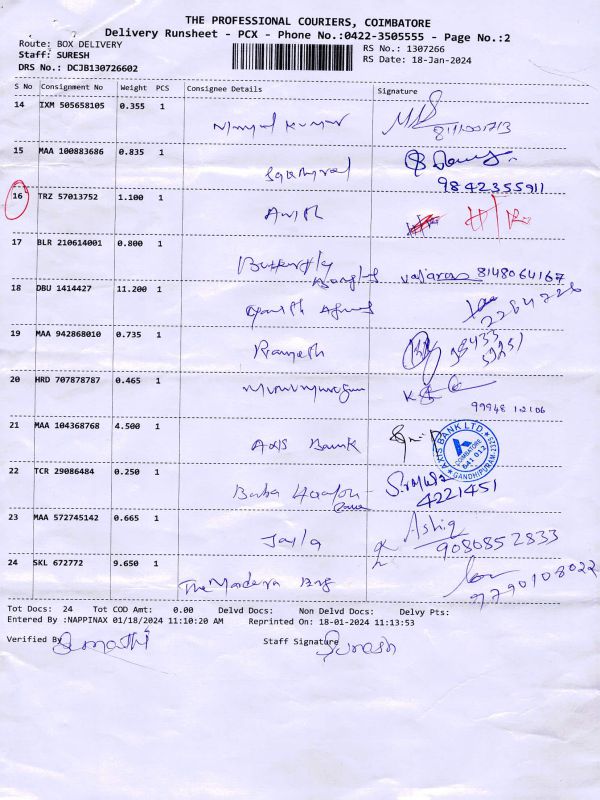 THE PROFESSIONAL COURIERS, COIMBATORE
Delivery Runsheet - PCX - Phone No.:0422-3505555 - Page No.:2
Route: BOX DELIVERY
RS No.: 1307266
Staff: SURESH
RS Date: 18-Jan-2024
DRS No.: DCJB130726602
S No Consignment No Weight PCS Consignee Details Signature
14 IXM 505658105 0.355 1 Kumar
15 MAA 100883686 0.835 1
9842355911
16 TRZ 57013752 1.100 1
17 BLR 210614001 0.800 1 Butterfly
8148064167
18 DBU 1414427 11.200 1
2284726
19 MAA 942868010 0.735 1 Ramesh
20 HRD 707878787 0.465 1
99948 12106
21 MAA 104368768 4.500 1 Axis Bank
AXIS BANK LTD. COIMBATORE GANDHIPURAM
22 TCR 29086484 0.250 1 Baba
4221451
23 MAA 572745142 0.665 1 Ashiq
9080852833
24 SKL 672772 9.650 1 The Modern Eng
9790108022
Tot Docs: 24 Tot COD Amt: 0.00 Delvd Docs: Non Delvd Docs: Delvy Pts:
Entered By :NAPPINAX 01/18/2024 11:10:20 AM Reprinted On : 18-01-2024 11:13:53
Verified By Sumathi Staff Signature Suresh